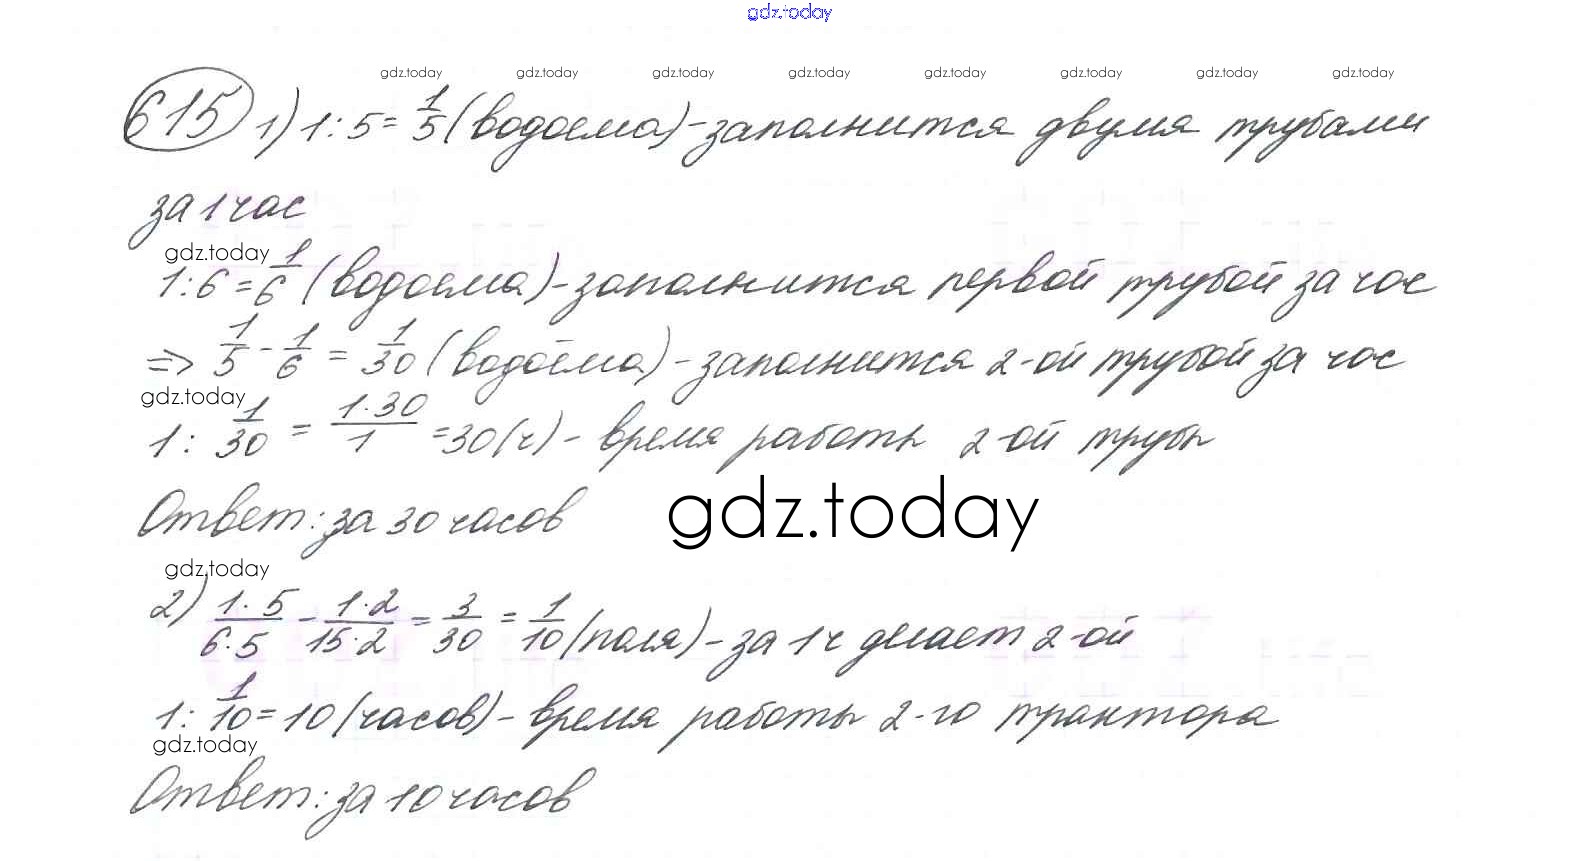 gdz.today
gdz.today gdz.today gdz.today gdz.today gdz.today gdz.today gdz.today gdz.today
615 1) 1:5=1/5 (водоема)-заполнится двумя трубами
за 1 час
gdz.today
1:6=1/6 (водоема)-заполнится первой трубой за час
=> 1/5-1/6=1/30 (водоёма)-заполнится 2-ой трубой за час
gdz.today
1:1/30=1·30/1=30(ч)-время работы 2-ой трубы
Ответ: за 30 часов
gdz.today
gdz.today
2) 1·5/6·5-1·2/15·2=3/30=1/10 (поля)-за 1ч делает 2-ой
1:1/10=10 (часов)-время работы 2-го трактора
gdz.today
Ответ: за 10 часов